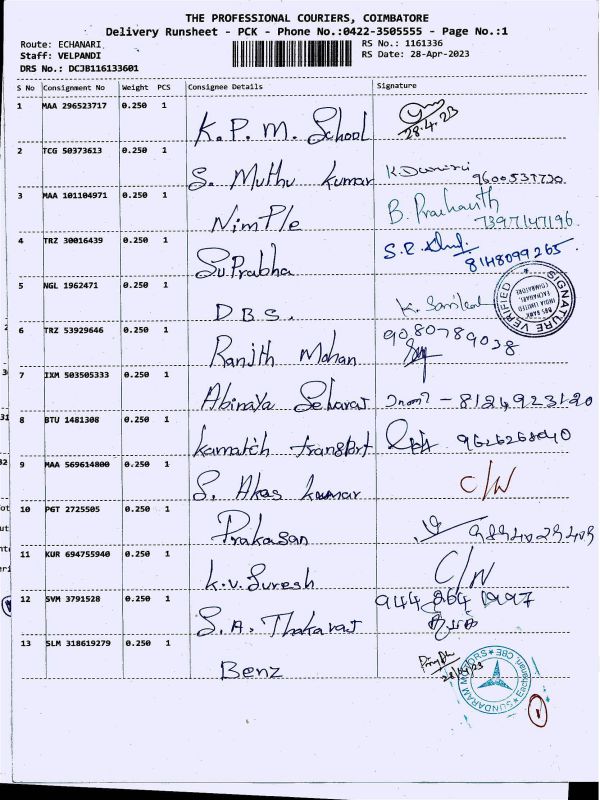 THE PROFESSIONAL COURIERS, COIMBATORE
Delivery Runsheet - PCK - Phone No.:0422-3505555 - Page No.:1
Route: ECHANARI RS No.: 1161336
Staff: VELPANDI RS Date: 28-Apr-2023
DRS No.: DCJB116133601
S No Consignment No Weight PCS Consignee Details Signature
1 MAA 296523717 0.250 1 K. P. M. School 28.4.23
2 TCG 50373613 0.250 1 S. Muthu Kumar
3 MAA 101104971 0.250 1 Nimple B. Prashanth 7397147196
4 TRZ 30016439 0.250 1 Su Prabha 8148099265
5 NGL 1962471 0.250 1 D B S.
SIGNATURE VERIFIED
DBS BANK INDIA LIMITED
COIMBATORE
6 TRZ 53929646 0.250 1 Ranjith Mohan 9080789038
7 IXM 503505333 0.250 1 Abinaya Selvaraj 8124923120
8 BTU 1481308 0.250 1 Kamatch transport
9 MAA 569614800 0.250 1 S. Akas Kumar C/W
10 PGT 2725505 0.250 1 Prakasan
11 KUR 694755940 0.250 1 K.V. Suresh C/W
12 SVM 3791528 0.250 1 S. A. Thakaraj
13 SLM 318619279 0.250 1 Benz
SUNDARAM MOTORS
CBE